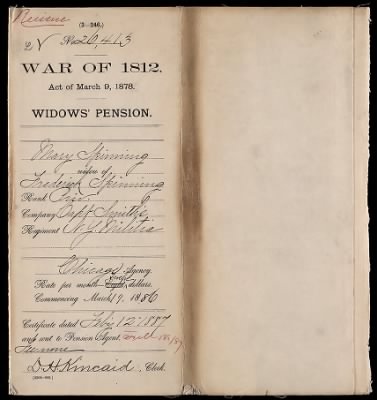 Reissue
(3—246.)
No. 26,413
WAR OF 1812.
Act of March 9, 1878.
WIDOWS' PENSION.
Mary Spinning
widow of
Frederick Spinning
Rank Priv.
Company Capt Smith's
Regiment N.Y. Militia
Chicago Agency.
Rate per month Eight dollars.
Commencing March 19, 1886
Certificate dated Feby 12 1887
and sent to Pension Agent.
D H Kincaid, Clerk.